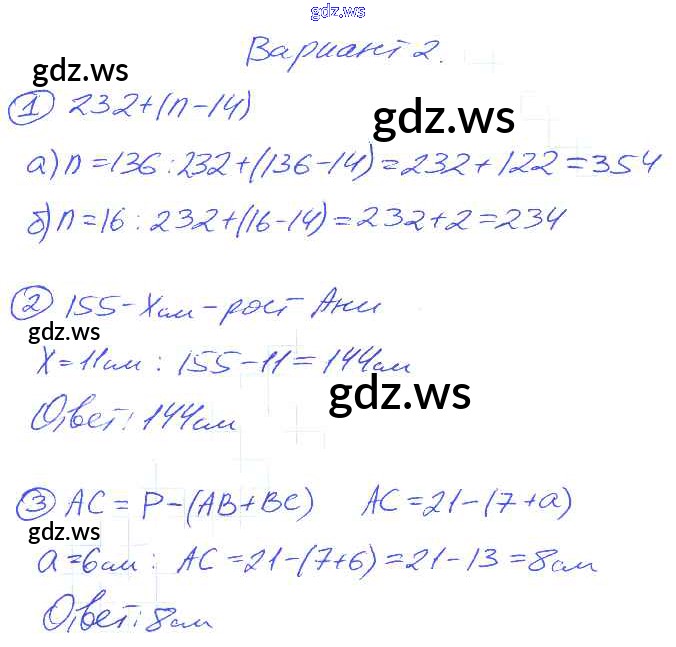 gdz.ws
Вариант 2.
gdz.ws
1 232+(n-14)
gdz.ws
а) n=136 : 232+(136-14)=232+122=354
б) n=16 : 232+(16-14)=232+2=234
2 155-Xсм-рост Ани
gdz.ws
X=11см : 155-11=144см
gdz.ws
Ответ: 144см
3 AC=P-(AB+BC) AC=21-(7+a)
gdz.ws
a=6см : AC=21-(7+6)=21-13=8см
Ответ: 8см